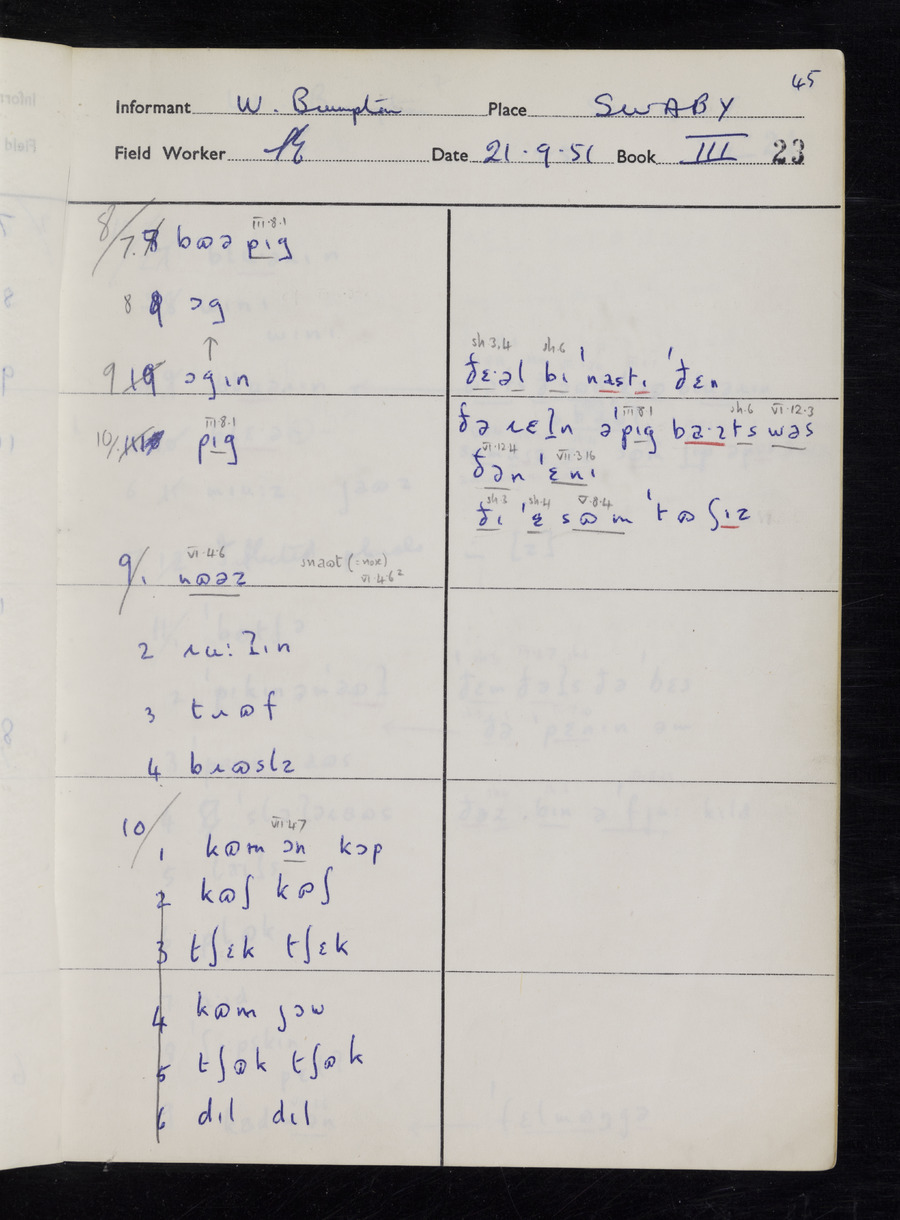 45
Informant W. Brumpton Place SWABY
Field Worker Date 21·9·51 Book III 23
III·8·1
8/ 7. bɷə pɪg
8 ɔg
↑
9 ɔgɪn
sh 3.4 sh.6
ðɛ·əl bɪ ˈnastɪ ˈðɛn
III·8·1
10/ pɪg
III 8·1 sh.6 VI·12·3
pɪg wəs
VI·12·4 VII·3 16
ðən ˈɛnɪ
sh·3 sh·4 V·8·4
ðɪ ˈɛ sɷm ˈtɷʃɪz
VI·4·6
9/ 1. nɷəz
snaɷt (= nose)
VI·4·6²
2 ɹu:ʔɪn
3 tɹɷf
4 bɹɷslz
VII 4·7
10/ 1 kɷm ɔn kɔp
2 kɷʃ kɷʃ
3 tʃɛk tʃɛk
4 kɷm jɔw
5 tʃɷk tʃɷk
6 dɪl dɪl